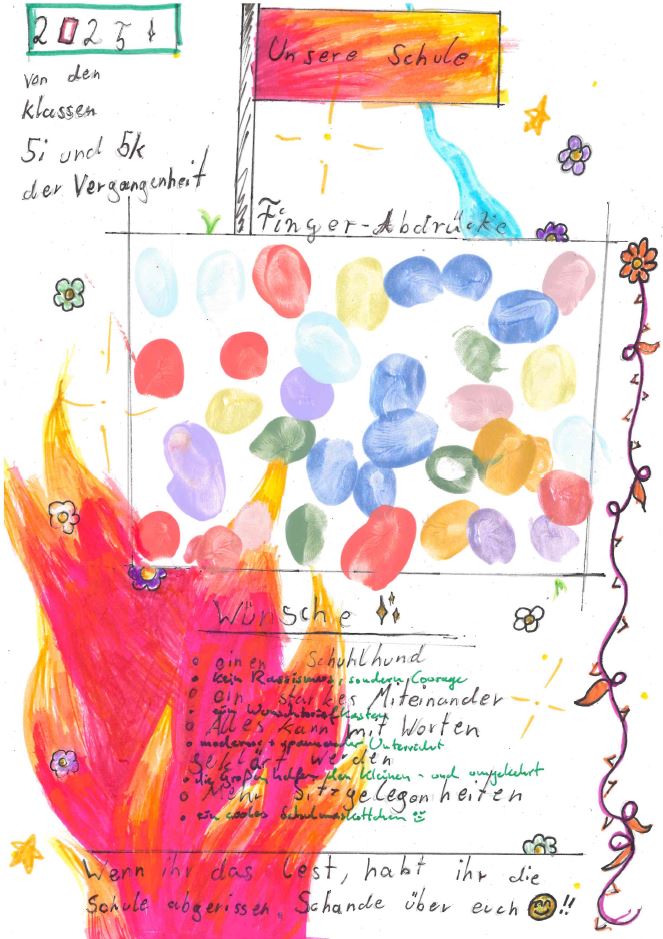 2025!
von den
Klassen
5i und 5k
der Vergangenheit
Unsere Schule
Finger-Abdrücke
Wünsche
einen Schuhlhund
kein Rassismus, sondern Courage
ein starkes Miteinander
ein Wunschbriefkasten
Alles kann mit Worten
moderner + spannender Unterricht
geklärt werden
die Großen helfen den Kleinen - und umgekehrt
Mehr Sitzgelegenheiten
ein cooles Schulmaskottchen
Wenn ihr das lest, habt ihr die
Schule abgerissen. Schande über euch !!